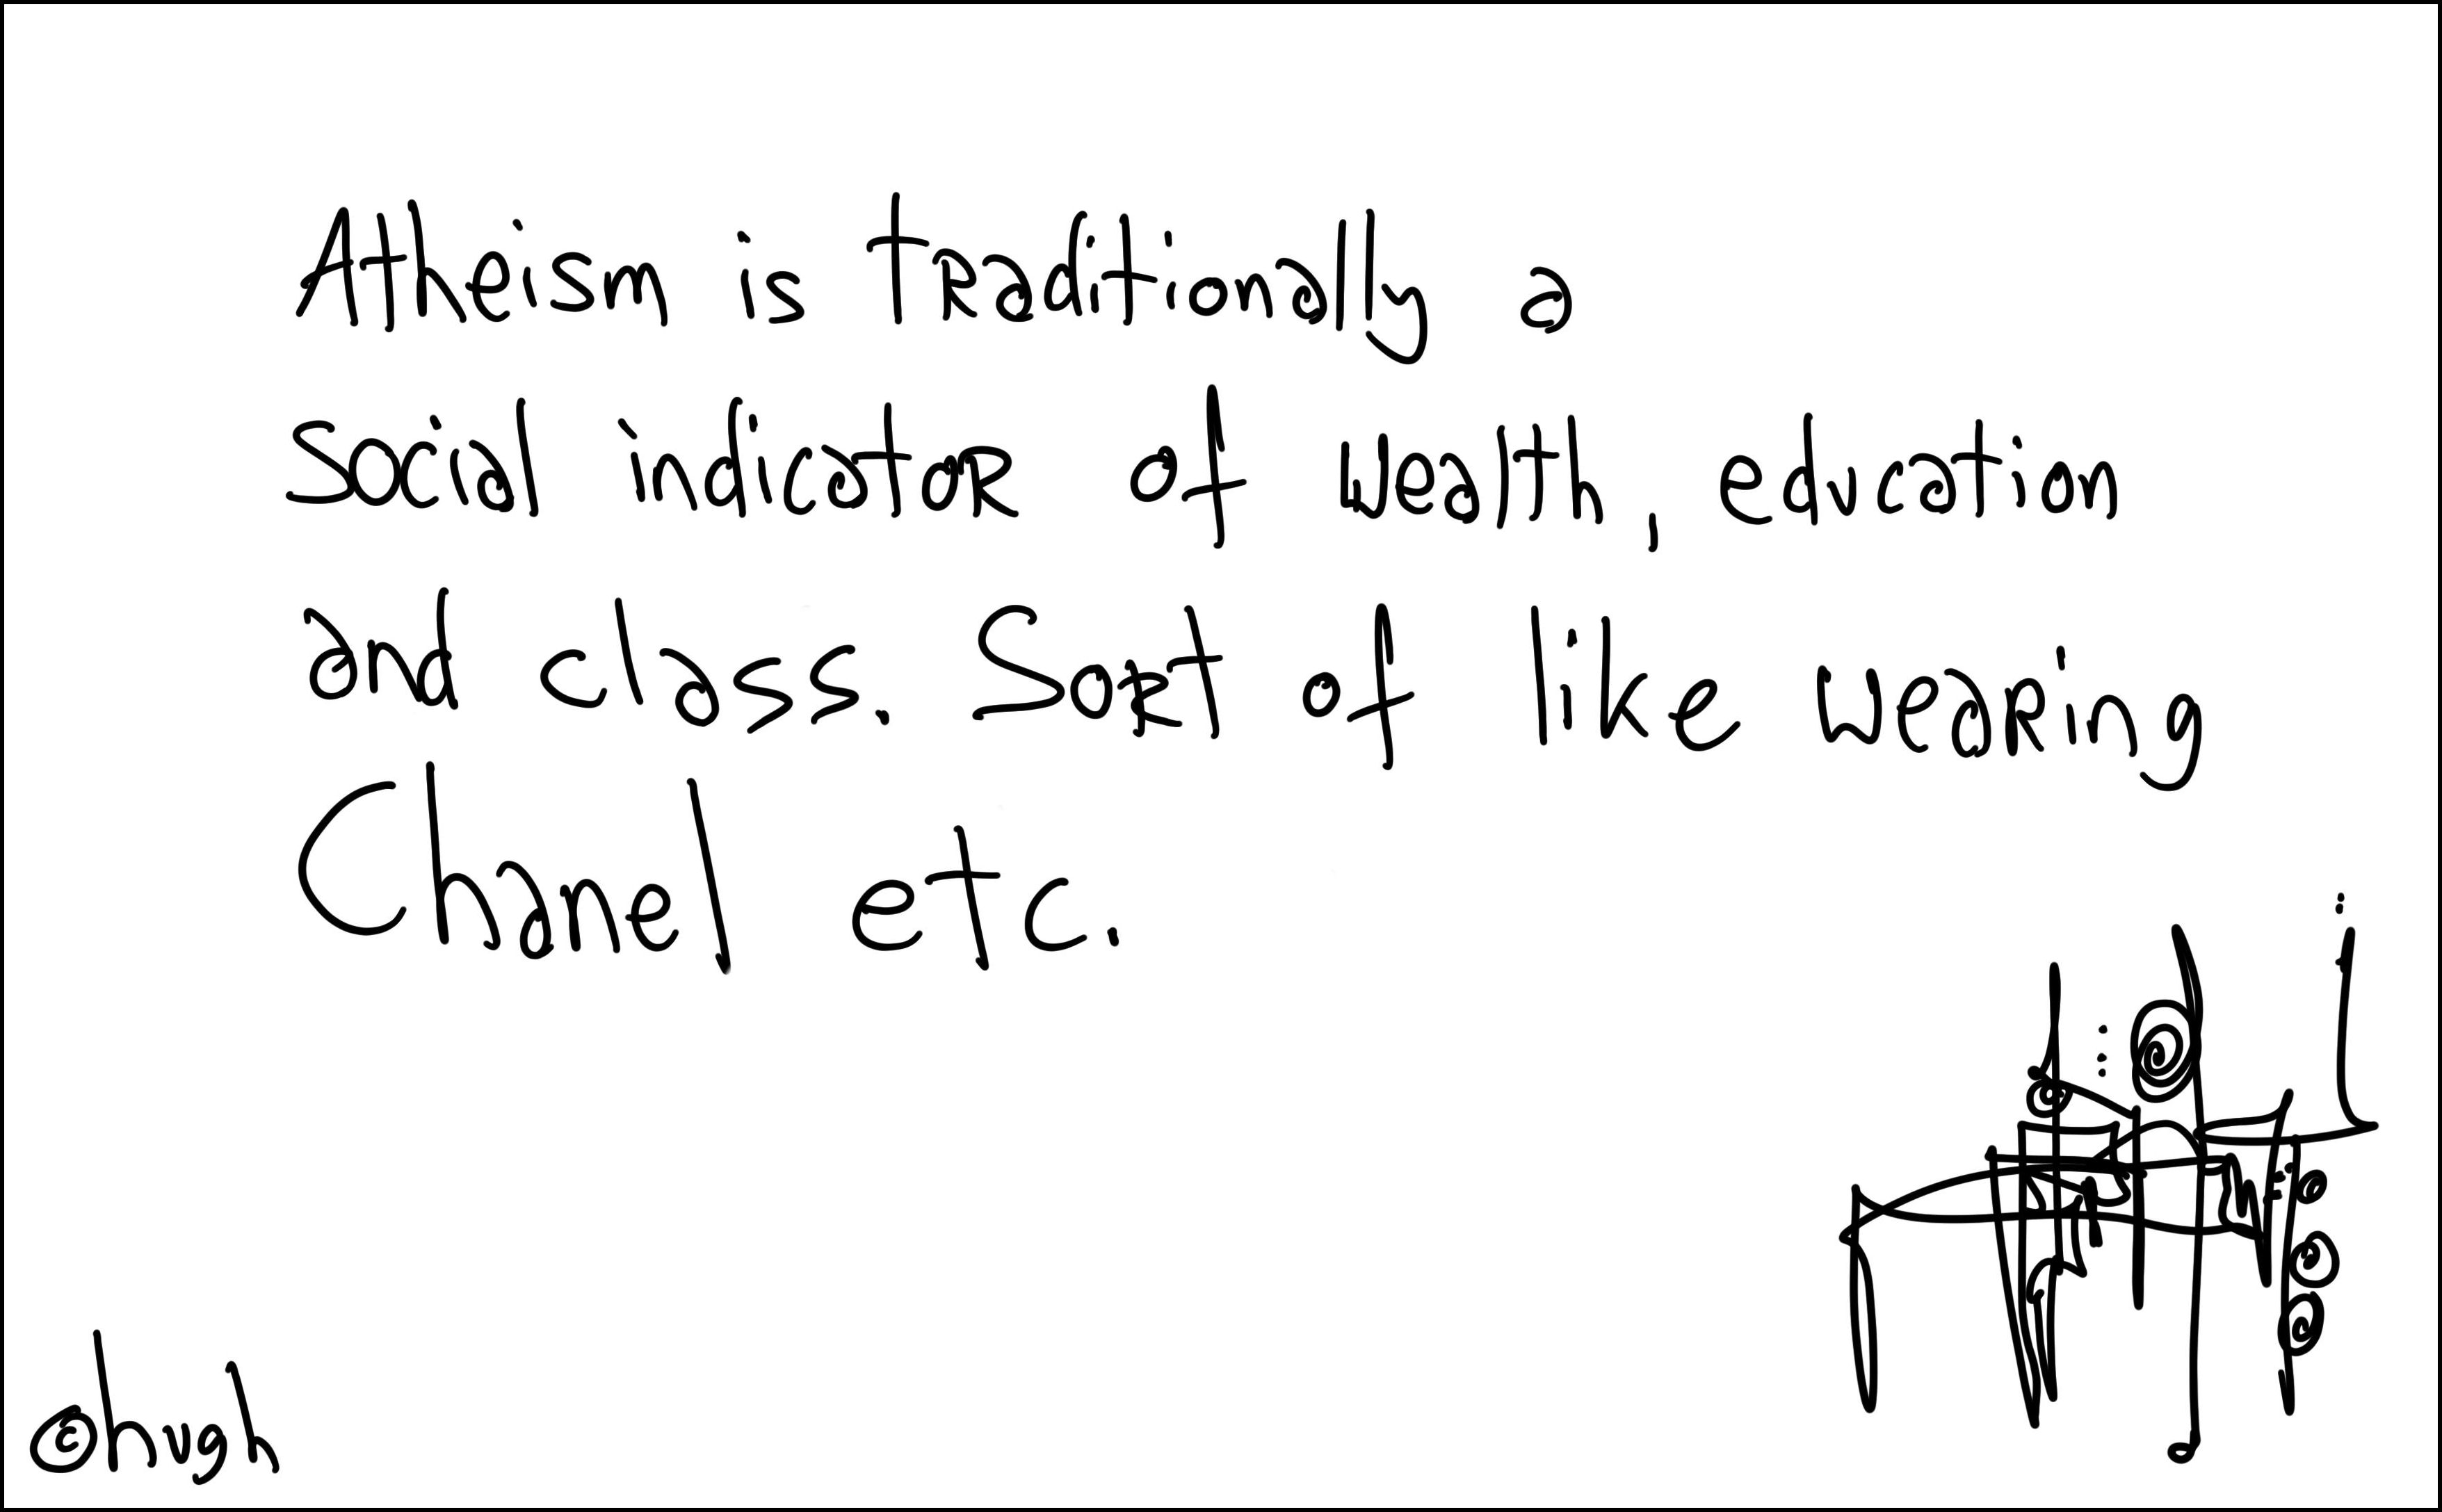 Atheism is traditionally a
social indicator of wealth, education
and class. Sort of like wearing
Chanel etc.
©hugh